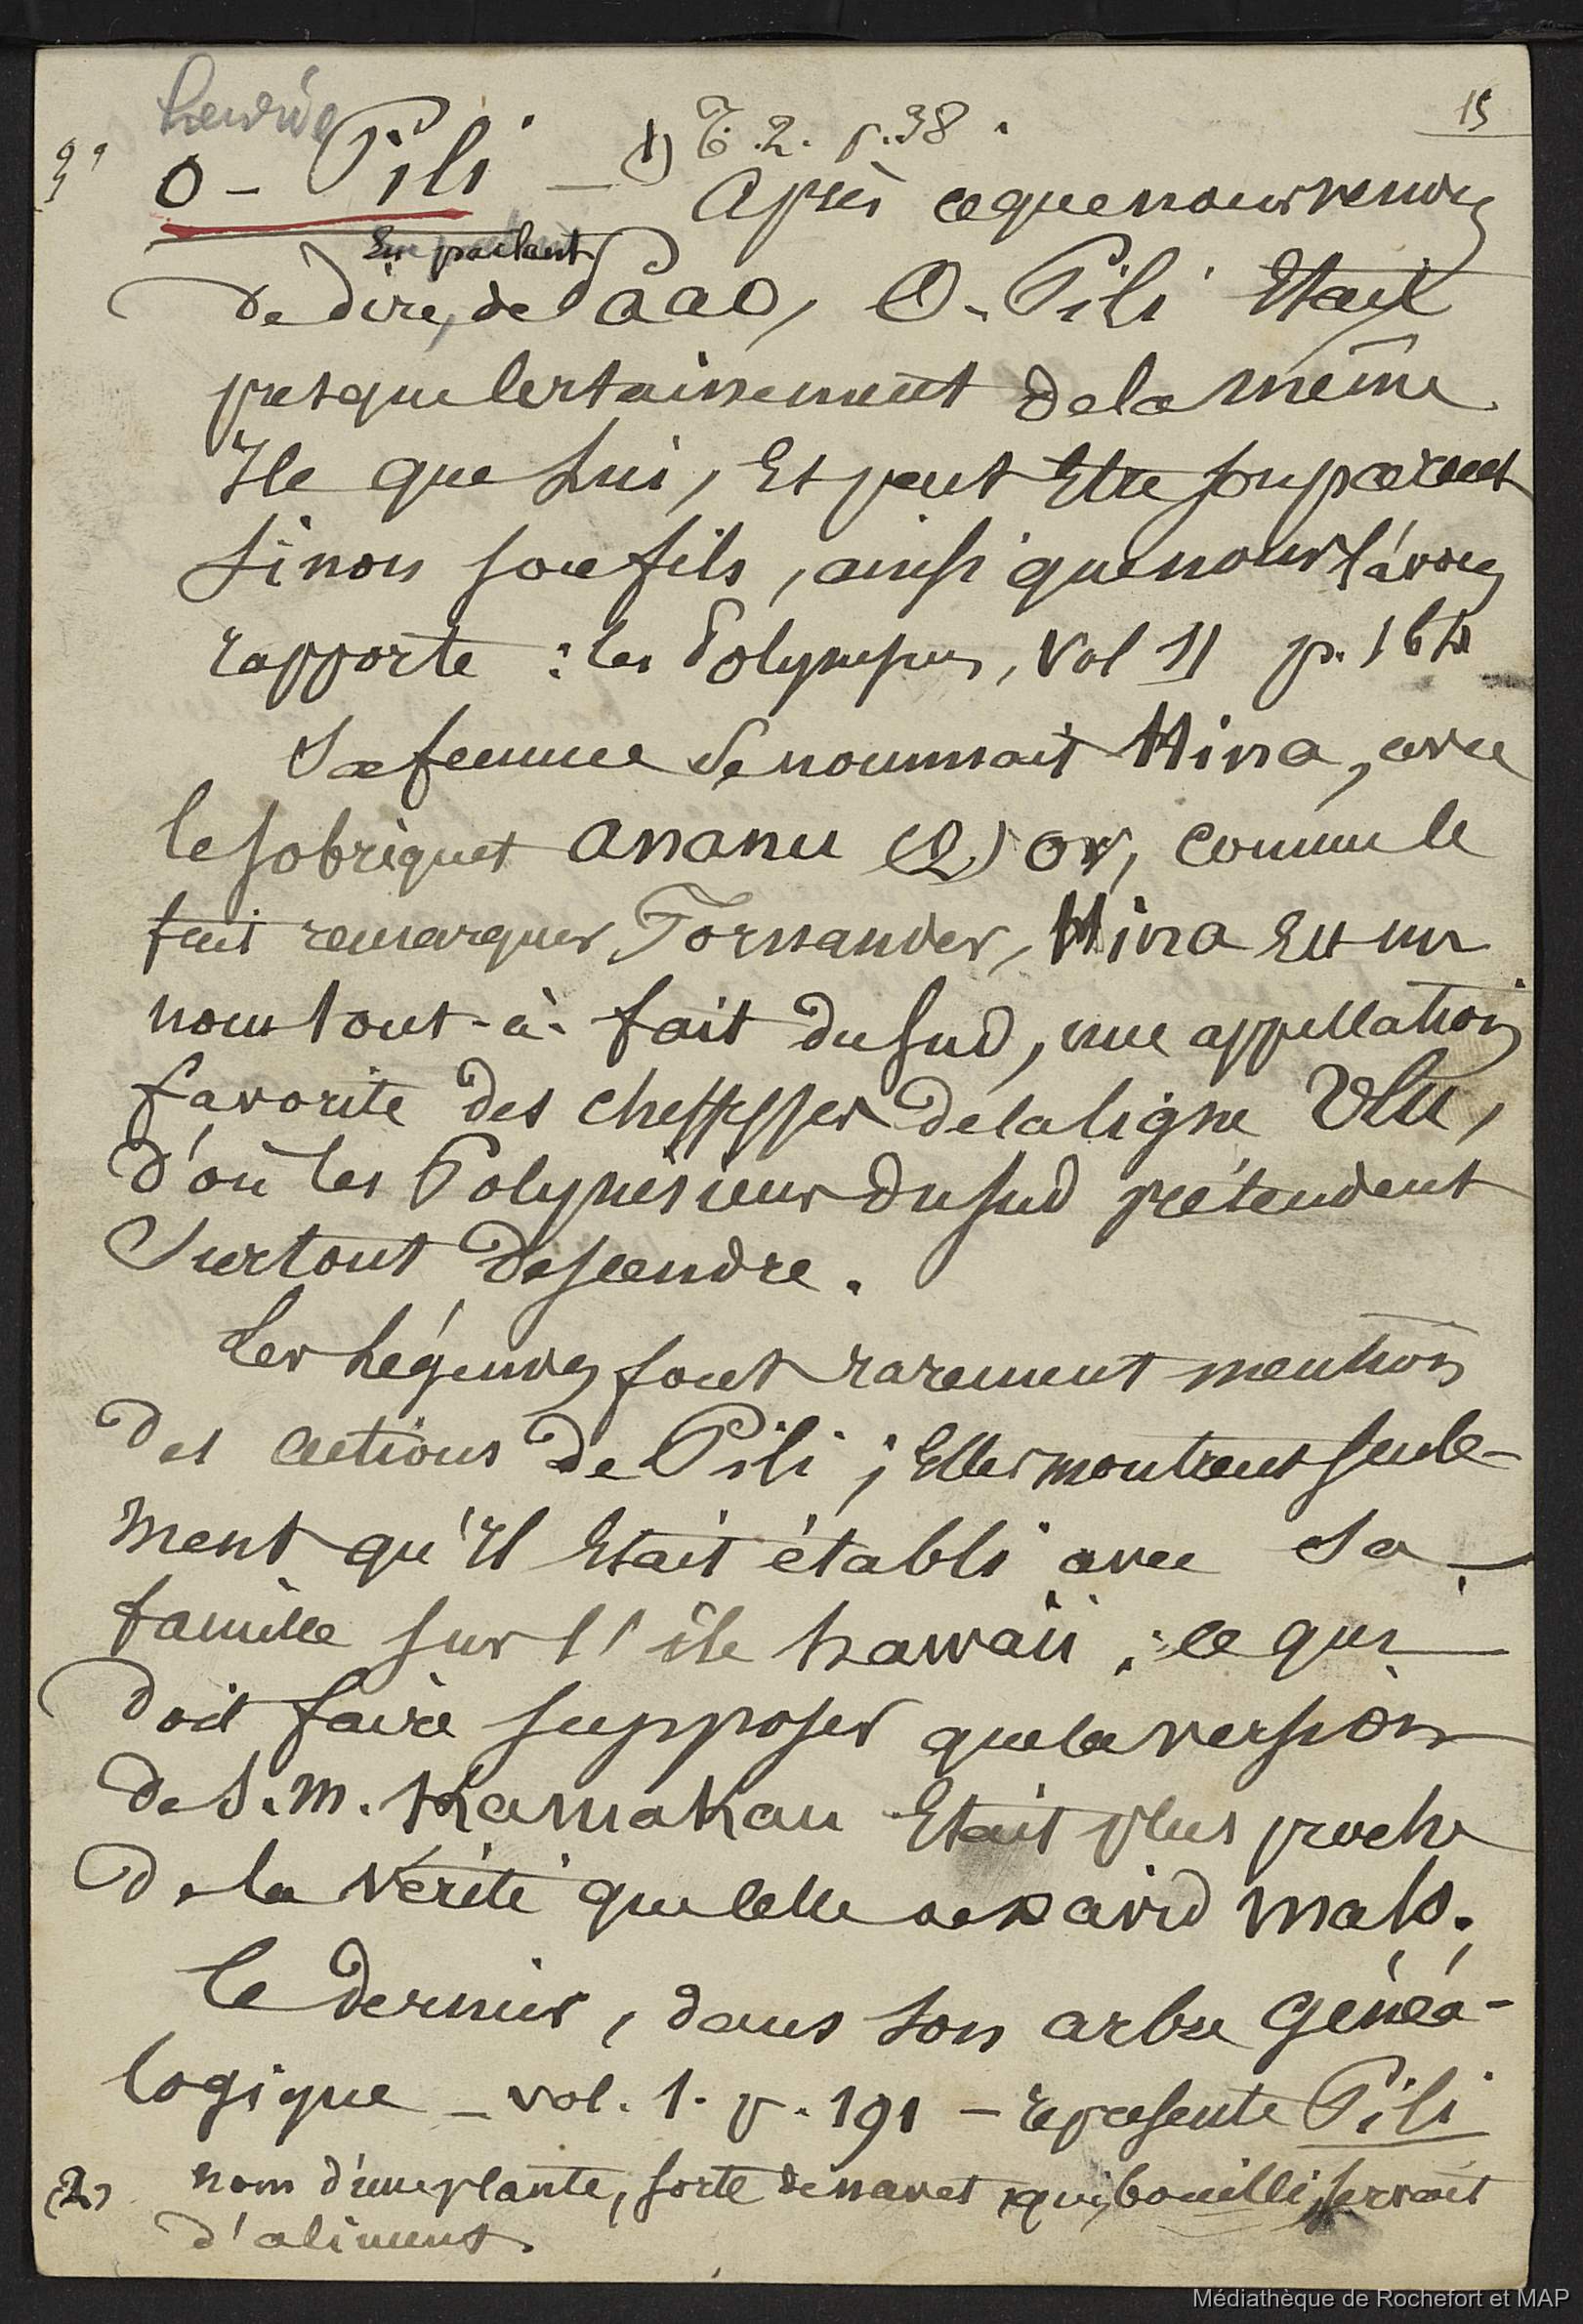 15
3° O - Pili - (1) T. 2. p. 38.
Après ce que nous venons
En parlant
de dire, de Paao, O-Pili Etait
presque certainement de la même
Ile que Lui, Et peut Etre son parent
sinon son fils, ainsi que nous l'avons
rapporté : les Polynesiens, vol II p.
Sa femme se nommait Hina, avec
le sobriquet ananu (2) or, comme le
fait remarquer Fornander, Hina Est un
nom tout-à-fait du sud, une appellation
favorite des cheffesses de la ligne Ulu,
d'où les Polynésiens du sud prétendent
surtout descendre.
Les Légendes font rarement mention
des actions de Pili ; Elles montrent seule-
ment qu'Il Etait établi avec sa
famille sur l'île hawaii ; ce qui
doit faire supposer que la version
de S. M. Kamakau Etait plus proche
de la vérité que celle de David malo.
Ce dernier, dans son arbre généa-
logique - vol. 1. p. 191 - représente Pili
(2) nom d'une plante, sorte de navet qui, bouilli, servait
d'aliment.
Médiathèque de Rochefort et MAP